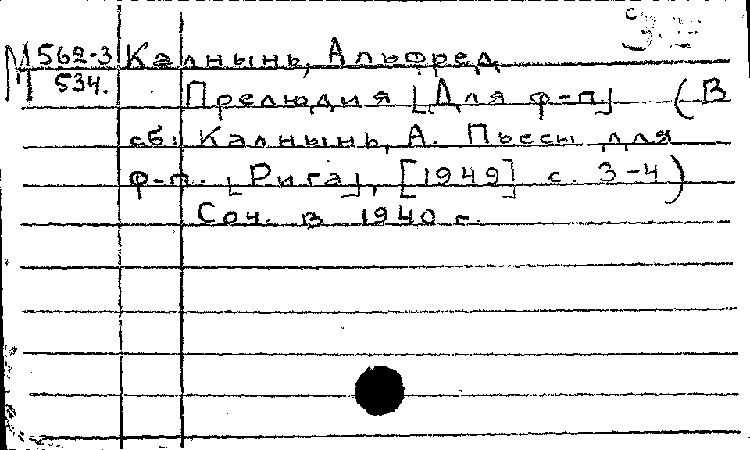 М 562-3 Калнынь, Альфред
534.
Прелюдия [Для ф-п] (В
сб: Калнынь, А. Пьесы для
ф-п. [Рига], [1949] с. 3-4)
Соч. в 1940 г.